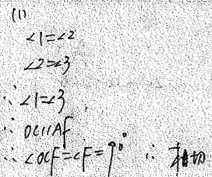 (1)
∠1=∠2
∠2=∠3
∴ ∠1=∠3
∴ OC∥AF
∴ ∠OCF=∠F=90° ∴ 相切